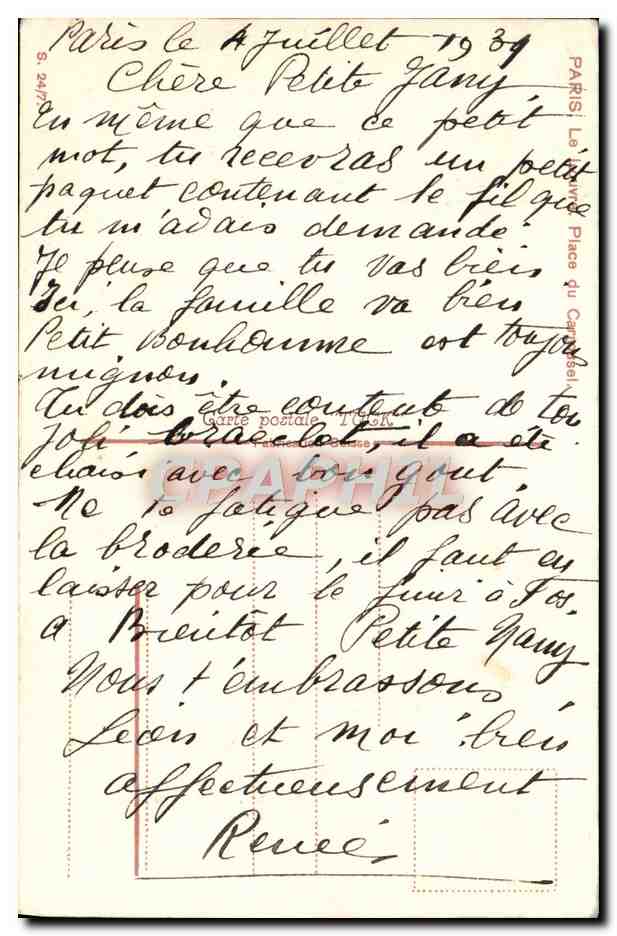 Paris le 4 Juillet 1931
Chère Petite Nany
En même que ce petit
mot, tu recevras un petit
paquet contenant le fil que
tu m'avais demandé
Je pense que tu vas bien
Ici, la famille va bien
Petit Bonhomme est toujours
mignon.
Tu dois être contente de ton
joli bracelet, il a été
choisi avec bon gout
Ne te fatigue pas avec
la broderie, il faut en
laisser pour le finir à Fos.
a Bientôt Petite Nany
Nous t'embrassons,
Léon et moi bien
affectueusement
Renée
Carte postale
CPAPHIL
PARIS. Le Louvre. Place du Carrousel
S. 24/7